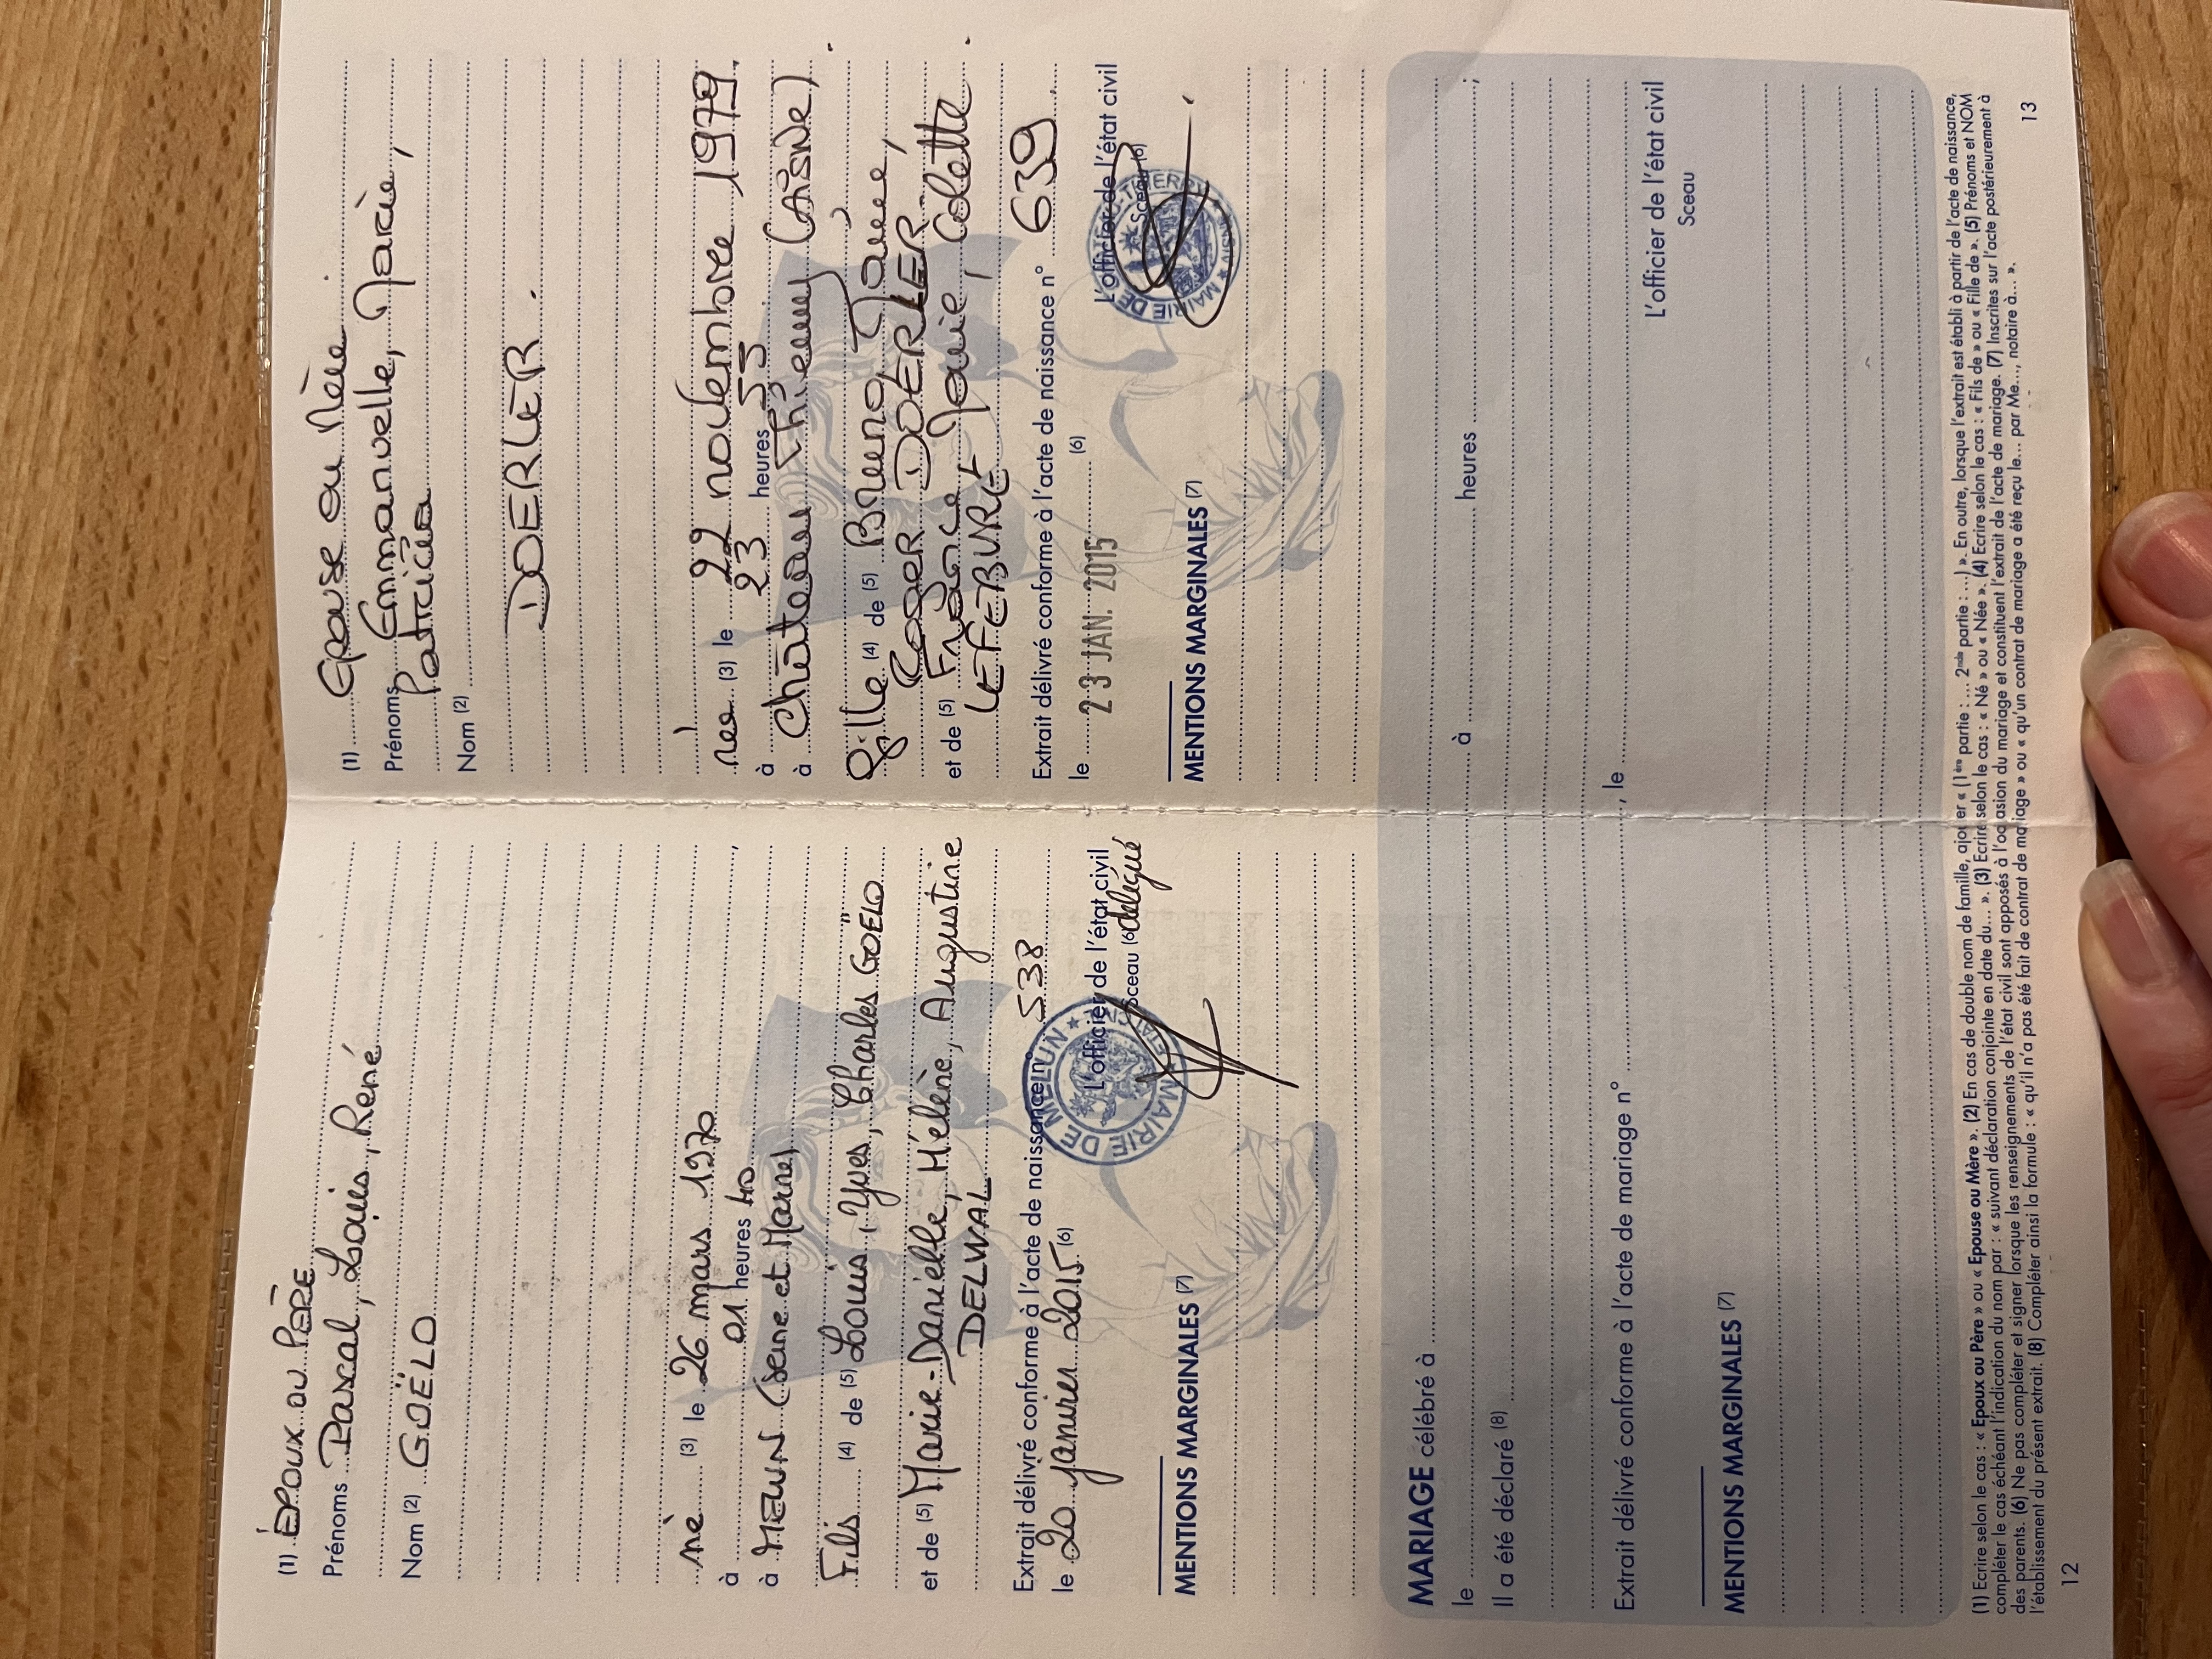 (1) ÉPOUX OU PÈRE
Prénoms Pascal, Louis, René
Nom (2) GOËLO
né (3) le 26 mars 1970
à 01 heures 40 ,
à MELUN (Seine et Marne)
Fils (4) de (5) Louis, Yves, Charles GOËLO
et de (5) Marie-Danielle, Hélène, Augustine
DELWAL
Extrait délivré conforme à l'acte de naissance n° 538
le 20 janvier 2015 (6) L'officier de l'état civil
Sceau (6) délégué
MAIRIE DE MELUN ★ ÉTAT CIVIL ★
MENTIONS MARGINALES (7)
(1) Epouse ou Mère
Prénoms Emmanuelle, Marie,
Patricia
Nom (2)
DOERLER.
née (3) le 22 novembre 1979.
à 23 heures 55
à Château Thierry (AISNE).
fille (4) de (5) Bruno, Marie,
Roger DOERLER
et de (5) France, Marie, Colette.
LEFEBVRE
Extrait délivré conforme à l'acte de naissance n° 639
le 23 JAN. 2015 (6) L'officier de l'état civil
Sceau (6)
MENTIONS MARGINALES (7)
MARIAGE célébré à ;
le à heures
Il a été déclaré (8)
Extrait délivré conforme à l'acte de mariage n° , le L'officier de l'état civil
Sceau
MENTIONS MARGINALES (7)
(1) Ecrire selon le cas : « Epoux ou Père » ou « Epouse ou Mère ». (2) En cas de double nom de famille, ajouter « (1ère partie : ... 2nde partie : ...) ». En outre, lorsque l'extrait est établi à partir de l'acte de naissance,
compléter le cas échéant l'indication du nom par : « suivant déclaration conjointe en date du... ». (3) Ecrire selon le cas : « Né » ou « Née ». (4) Ecrire selon le cas : « Fils de » ou « Fille de ». (5) Prénoms et NOM
des parents. (6) Ne pas compléter et signer lorsque les renseignements de l'état civil sont apposés à l'occasion du mariage et constituent l'extrait de l'acte de mariage. (7) Inscrites sur l'acte postérieurement à
l'établissement du présent extrait. (8) Compléter ainsi la formule : « qu'il n'a pas été fait de contrat de mariage » ou « qu'un contrat de mariage a été reçu le... par Me..., notaire à... ».
12
13